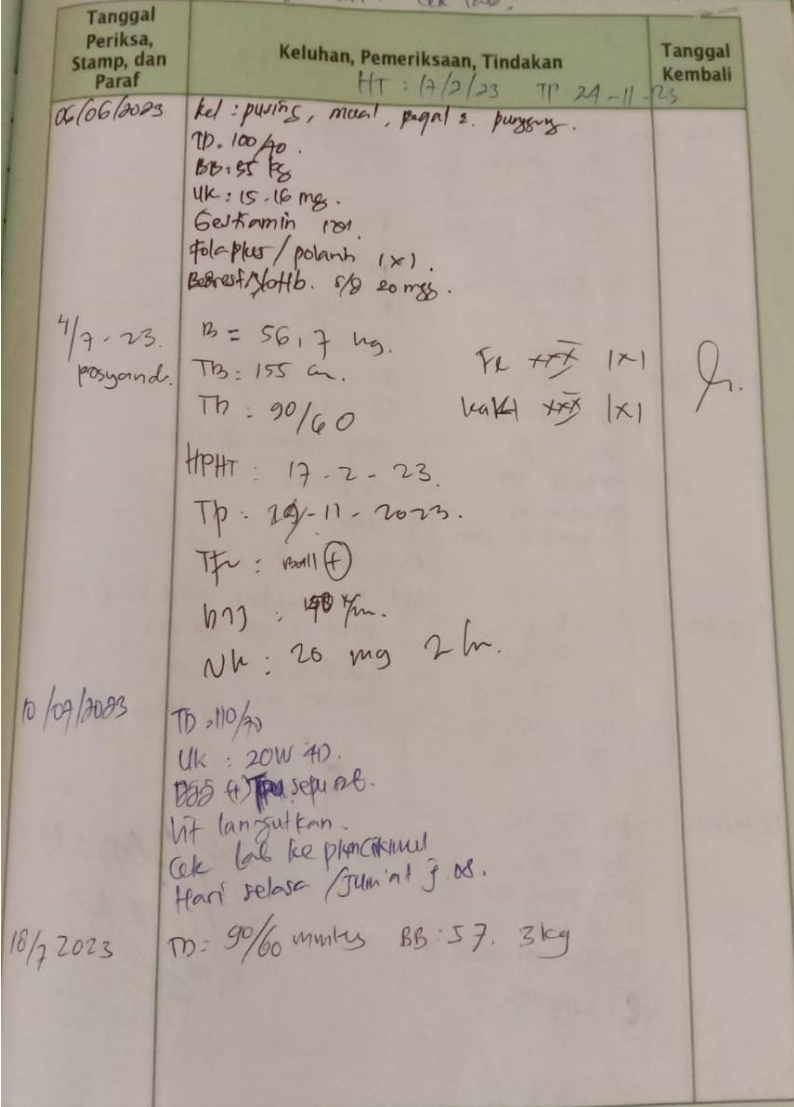 Cek lab.
Tanggal Periksa, Stamp, dan Paraf
Keluhan, Pemeriksaan, Tindakan
Tanggal Kembali
HT : 17/2/23 TP 24-11-23
06/06/2023 Kel : pusing, mual, pegal 2. punggung.
TD. 100/70.
BB: 55 kg
UK : 15-16 mg.
Gestiamin 1x1.
Folaplus / 1x1.
s/d 20 mgg.
4/7-23. B = 56,7 kg.
posyand. TB : 155 cm.
Fe XXX 1x1
TD : 90/60
kalk XXX 1x1
HPHT : 17-2-23.
TP : 24-11-2023.
TFU : ball (+)
DJJ : x/m.
UK : 20 mg 2 hr.
10/07/2023 TD : 110/70
UK : 20W 4D.
(+) TFU sepusat.
Vit lanjutkan.
Cek lab ke
Hari selasa / Jum'at j 08.
18/7 2023 TD = 90/60 mmHg BB : 57. 3 kg